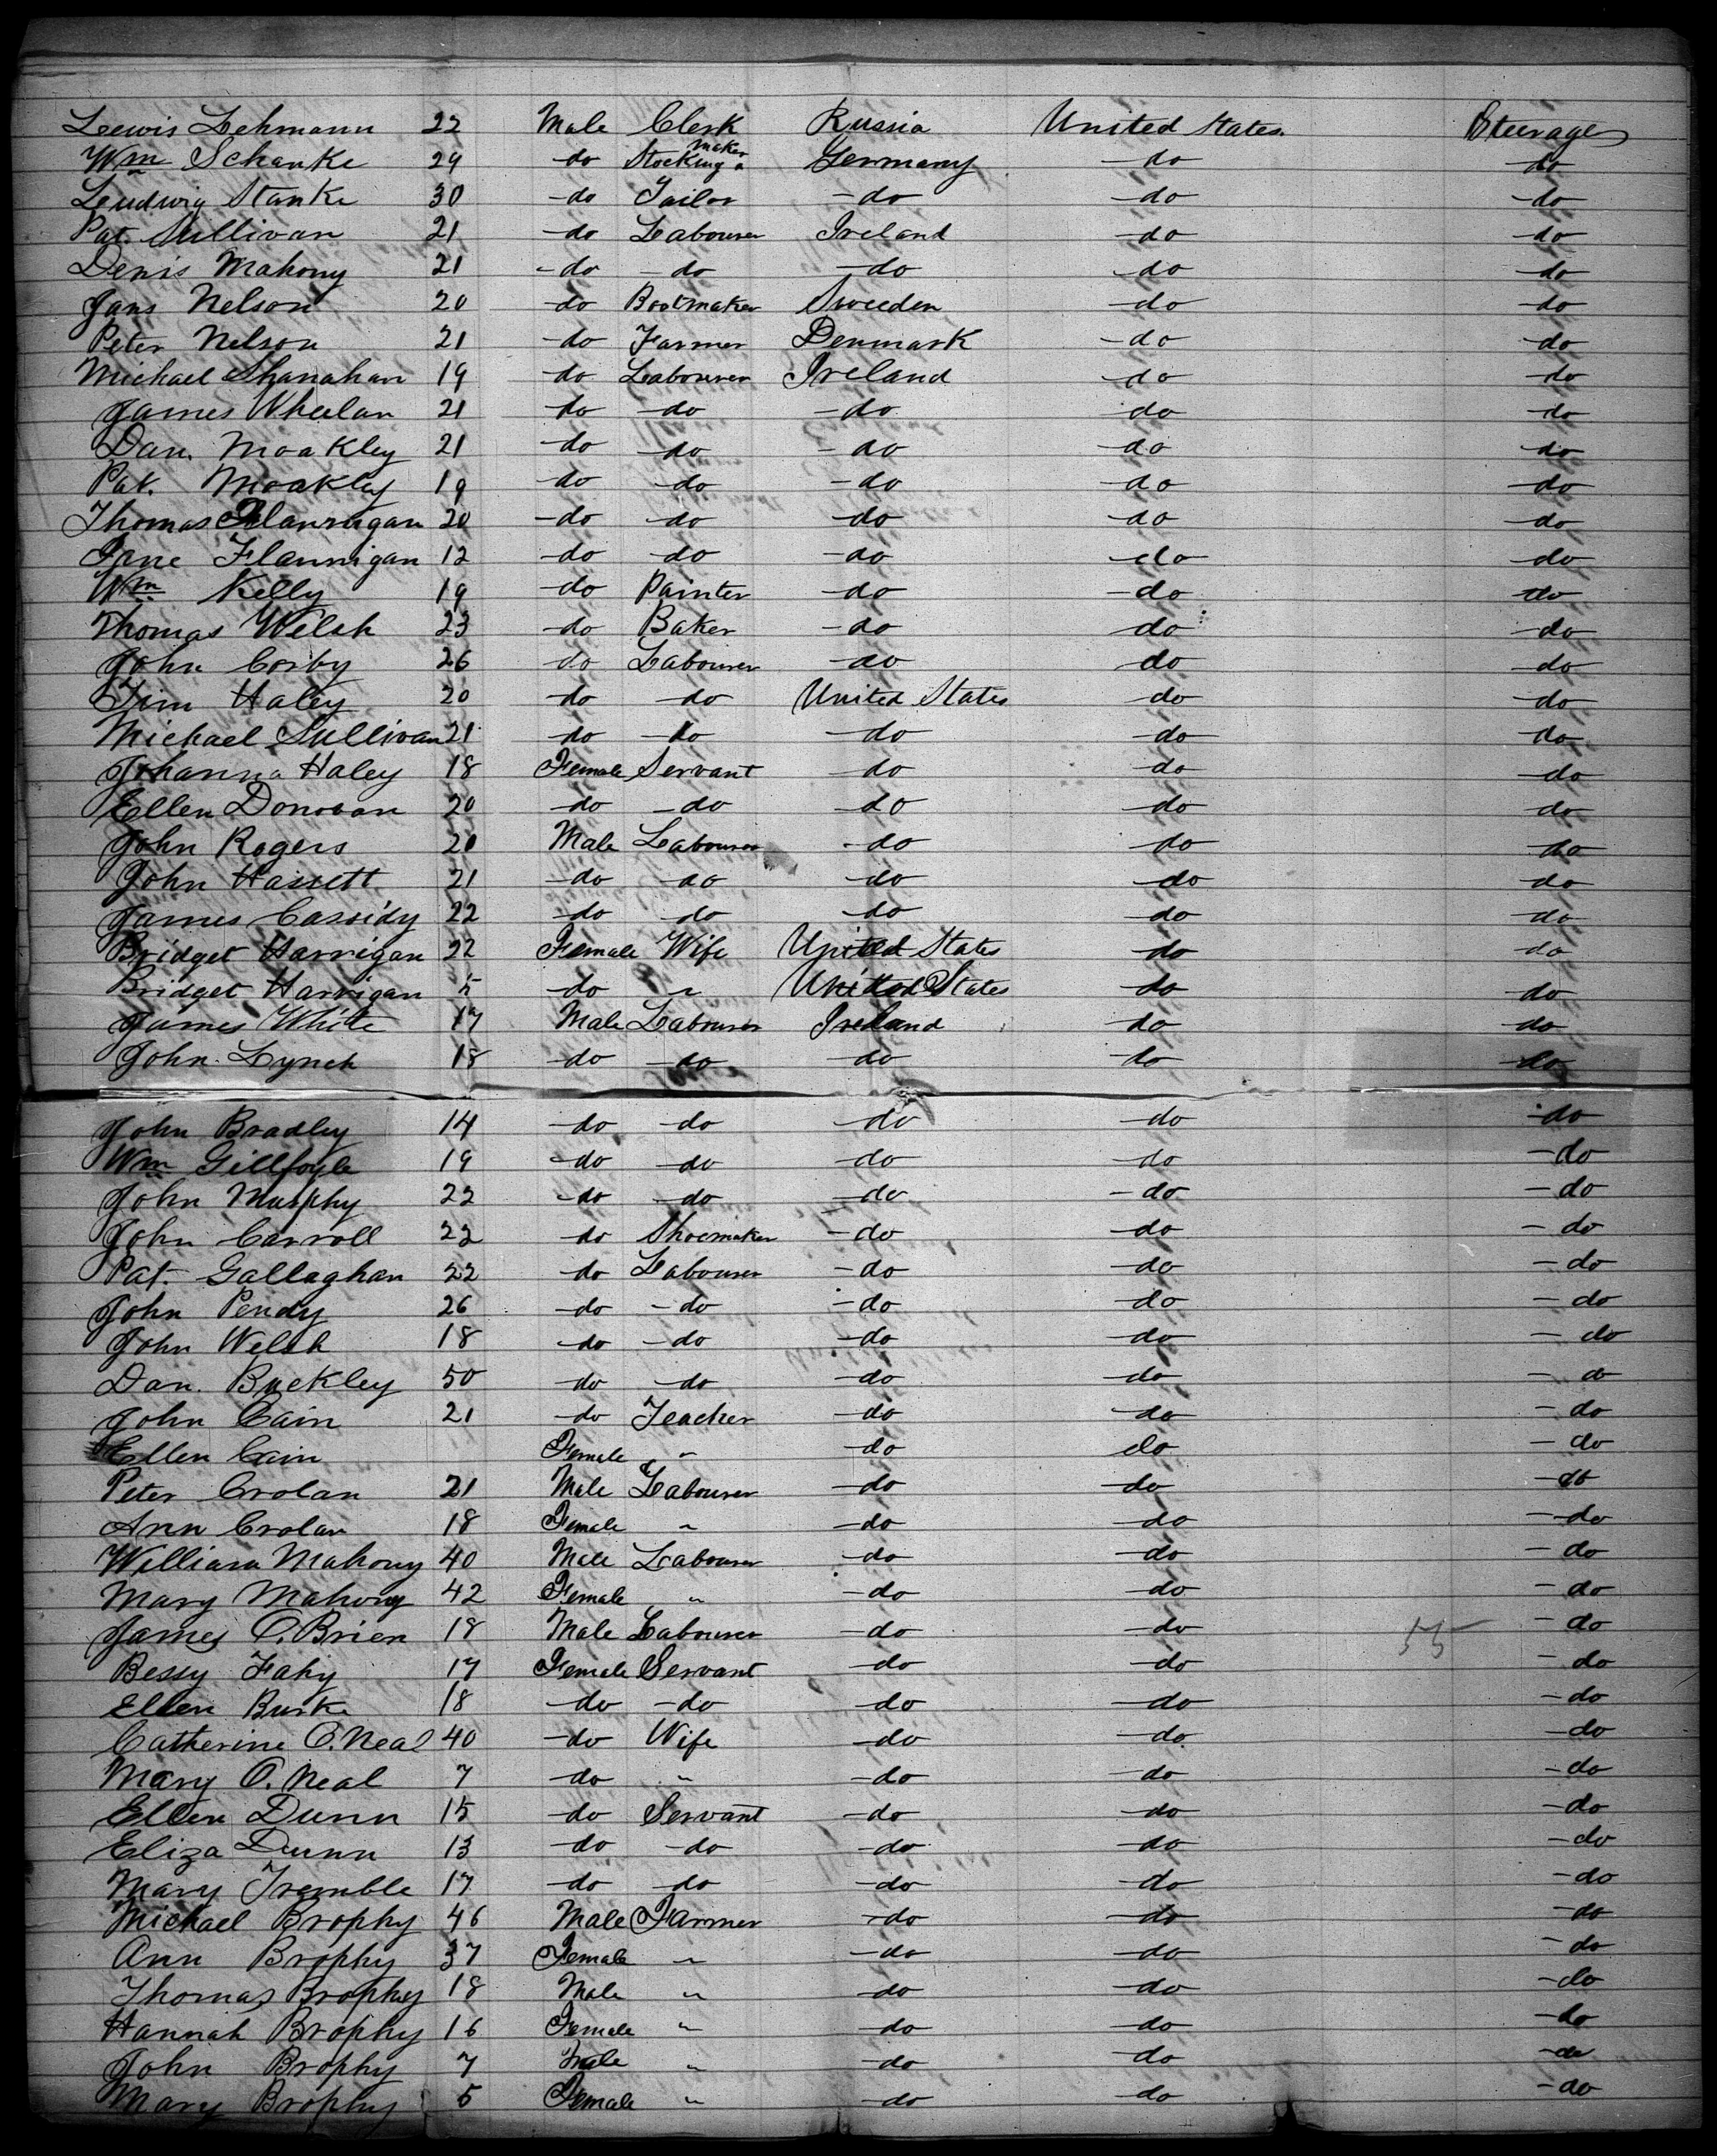 Lewis Lehmann 22 Male Clerk Russia United States Steerage
Wm Schanke 29 -do Stocking maker Germany -do- do
Leudwig Stanke 30 -do Tailor -do -do -do
Pat. Sullivan 21 -do Labourer Ireland -do -do
Denis Mahony 21 -do -do -do -do do
Jans Nelson 20 -do Bootmaker Sweeden -do -do
Peter Nelson 21 -do Farmer Denmark -do -do
Michael Shanahan 19 -do Labourer Ireland -do -do
James Wheelan 21 -do -do -do -do -do
Dan. Moakley 21 -do -do -do -do -do
Pat. Moakley 19 -do -do -do -do -do
Thomas Flannigan 20 -do -do -do -do -do
Jane Flannigan 12 -do -do -do -do -do
Wm Kelly 19 -do Painter -do -do -do
Thomas Welsh 23 -do Baker -do do -do
John Corby 26 do Labourer -do do -do
Tim Haley 20 -do -do United States -do -do
Michael Sullivan 21 -do -do -do -do -do
Johanna Haley 18 Female Servant -do -do -do
Ellen Donovan 20 -do -do -do -do -do
John Rogers 20 Male Labourer -do -do -do
John Hassett 21 -do -do -do -do -do
James Cassidy 22 -do -do -do -do -do
Bridget Harrigan 22 Female Wife United States -do do
Bridget Harrigan 5 -do " United States -do -do
James White 17 Male Labourer Ireland -do -do
John Lynch 18 -do -do -do -do -do
John Bradley 14 -do -do -do -do -do
Wm Gillfoyle 19 -do -do -do -do -do
John Murphy 22 -do -do -do -do -do
John Carroll 22 -do Shoemaker -do -do -do
Pat. Gallaghan 22 -do Labourer -do -do -do
John Pendy 26 -do -do -do -do -do
John Welsh 18 -do -do -do -do -do
Dan. Buckley 50 -do -do -do -do -do
John Cain 21 -do Teacher -do -do -do
Ellen Cain Female " -do do -do
Peter Crolan 21 Male Labourer -do -do -do
Ann Crolan 18 Female " -do -do -do
William Mahony 40 Male Labourer -do -do -do
Mary Mahony 42 Female " -do -do -do
James O.Brien 18 Male Labourer -do -do -do
Bessy Fahy 17 Female Servant -do -do -do
Ellen Burke 18 -do -do -do -do -do
Catherine O.Neal 40 -do Wife -do -do -do
Mary O.Neal 7 -do " -do -do -do
Ellen Dunn 15 -do Servant -do -do -do
Eliza Dunn 13 -do -do -do -do -do
Mary Tremble 17 -do -do -do -do -do
Michael Brophy 46 Male Farmer -do -do -do
Ann Brophy 37 Female " -do -do -do
Thomas Brophy 18 Male " -do -do -do
Hannah Brophy 16 Female " -do -do -do
John Brophy 7 Male " -do -do -do
Mary Brophy 5 Female " -do -do -do